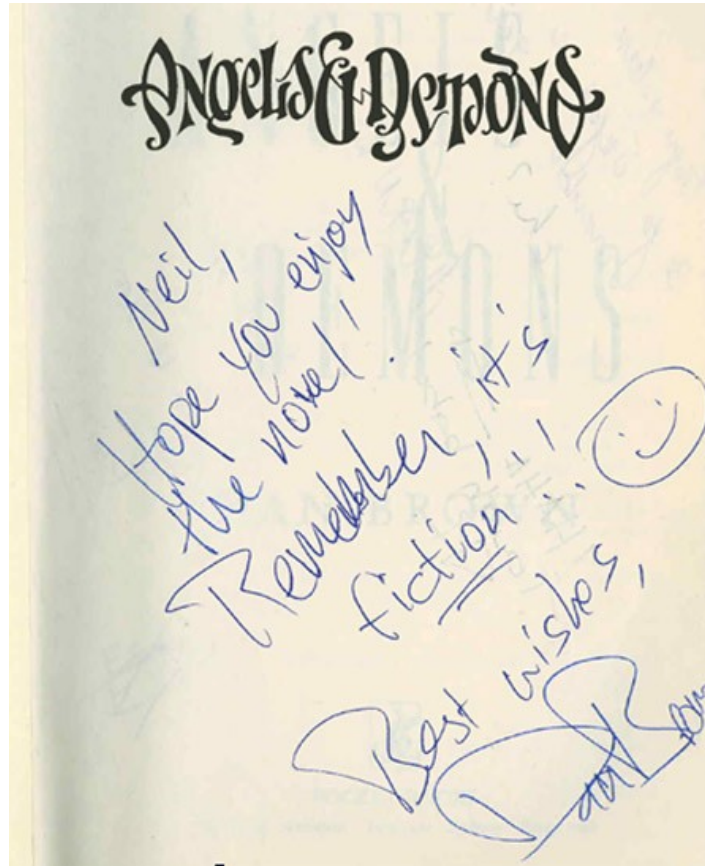 Angels & Demons
Neil,
Hope you enjoy
the novel!
Remember, it's
fiction!!!
Best wishes,
Dan Brow